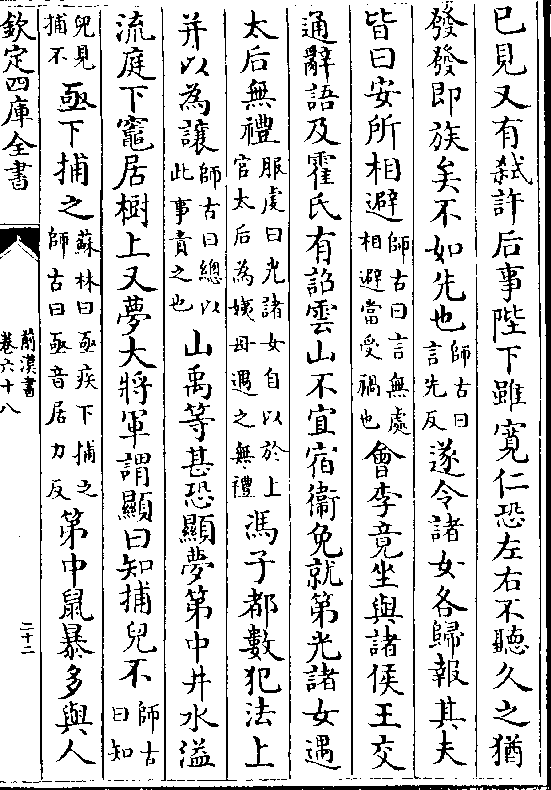 已見又有弑許后事陛下雖寛仁恐左右不聽久之猶
發發即族矣不如先也師古曰言先反遂令諸女各歸報其夫
皆曰安所相避師古曰言無處相避當受禍也會李竟坐與諸侯王交
通辭語及霍氏有詔雲山不宜宿衞免就第光諸女遇
太后無禮服虔曰光諸女自以於上官太后為姨母遇之無禮馮子都數犯法上
并以為讓師古曰總以此事責之也山禹等甚恐顯夢第中井水溢
流庭下竈居樹上又夢大將軍謂顯曰知捕兒不師古曰知
兒見捕不亟下捕之蘇林曰亟疾下捕之師古曰亟音居力反第中鼠暴多與人
欽定四庫全書
前漢書
卷六十八
二十二